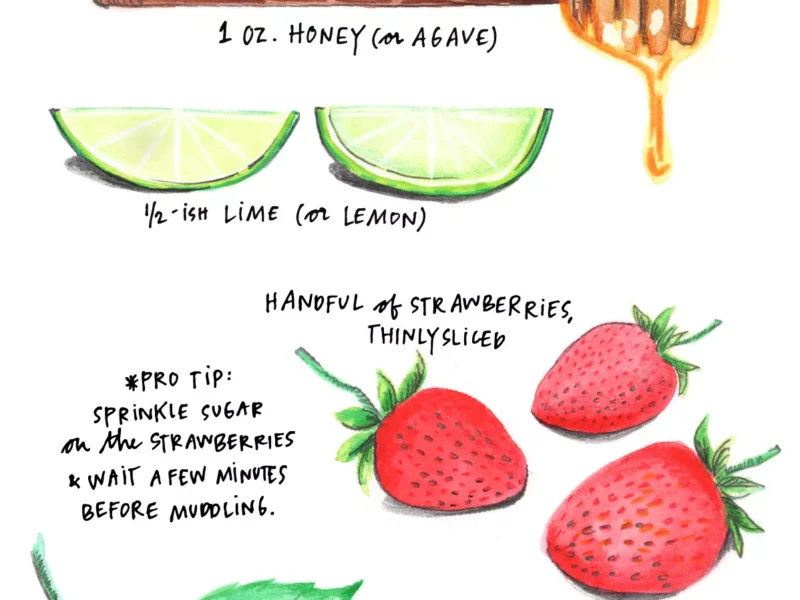 1 OZ. HONEY (or AGAVE)
1/2-ISH LIME (or LEMON)
HANDFUL of STRAWBERRIES,
THINLY SLICED
*PRO TIP:
SPRINKLE SUGAR
on the STRAWBERRIES
& WAIT A FEW MINUTES
BEFORE MUDDLING.